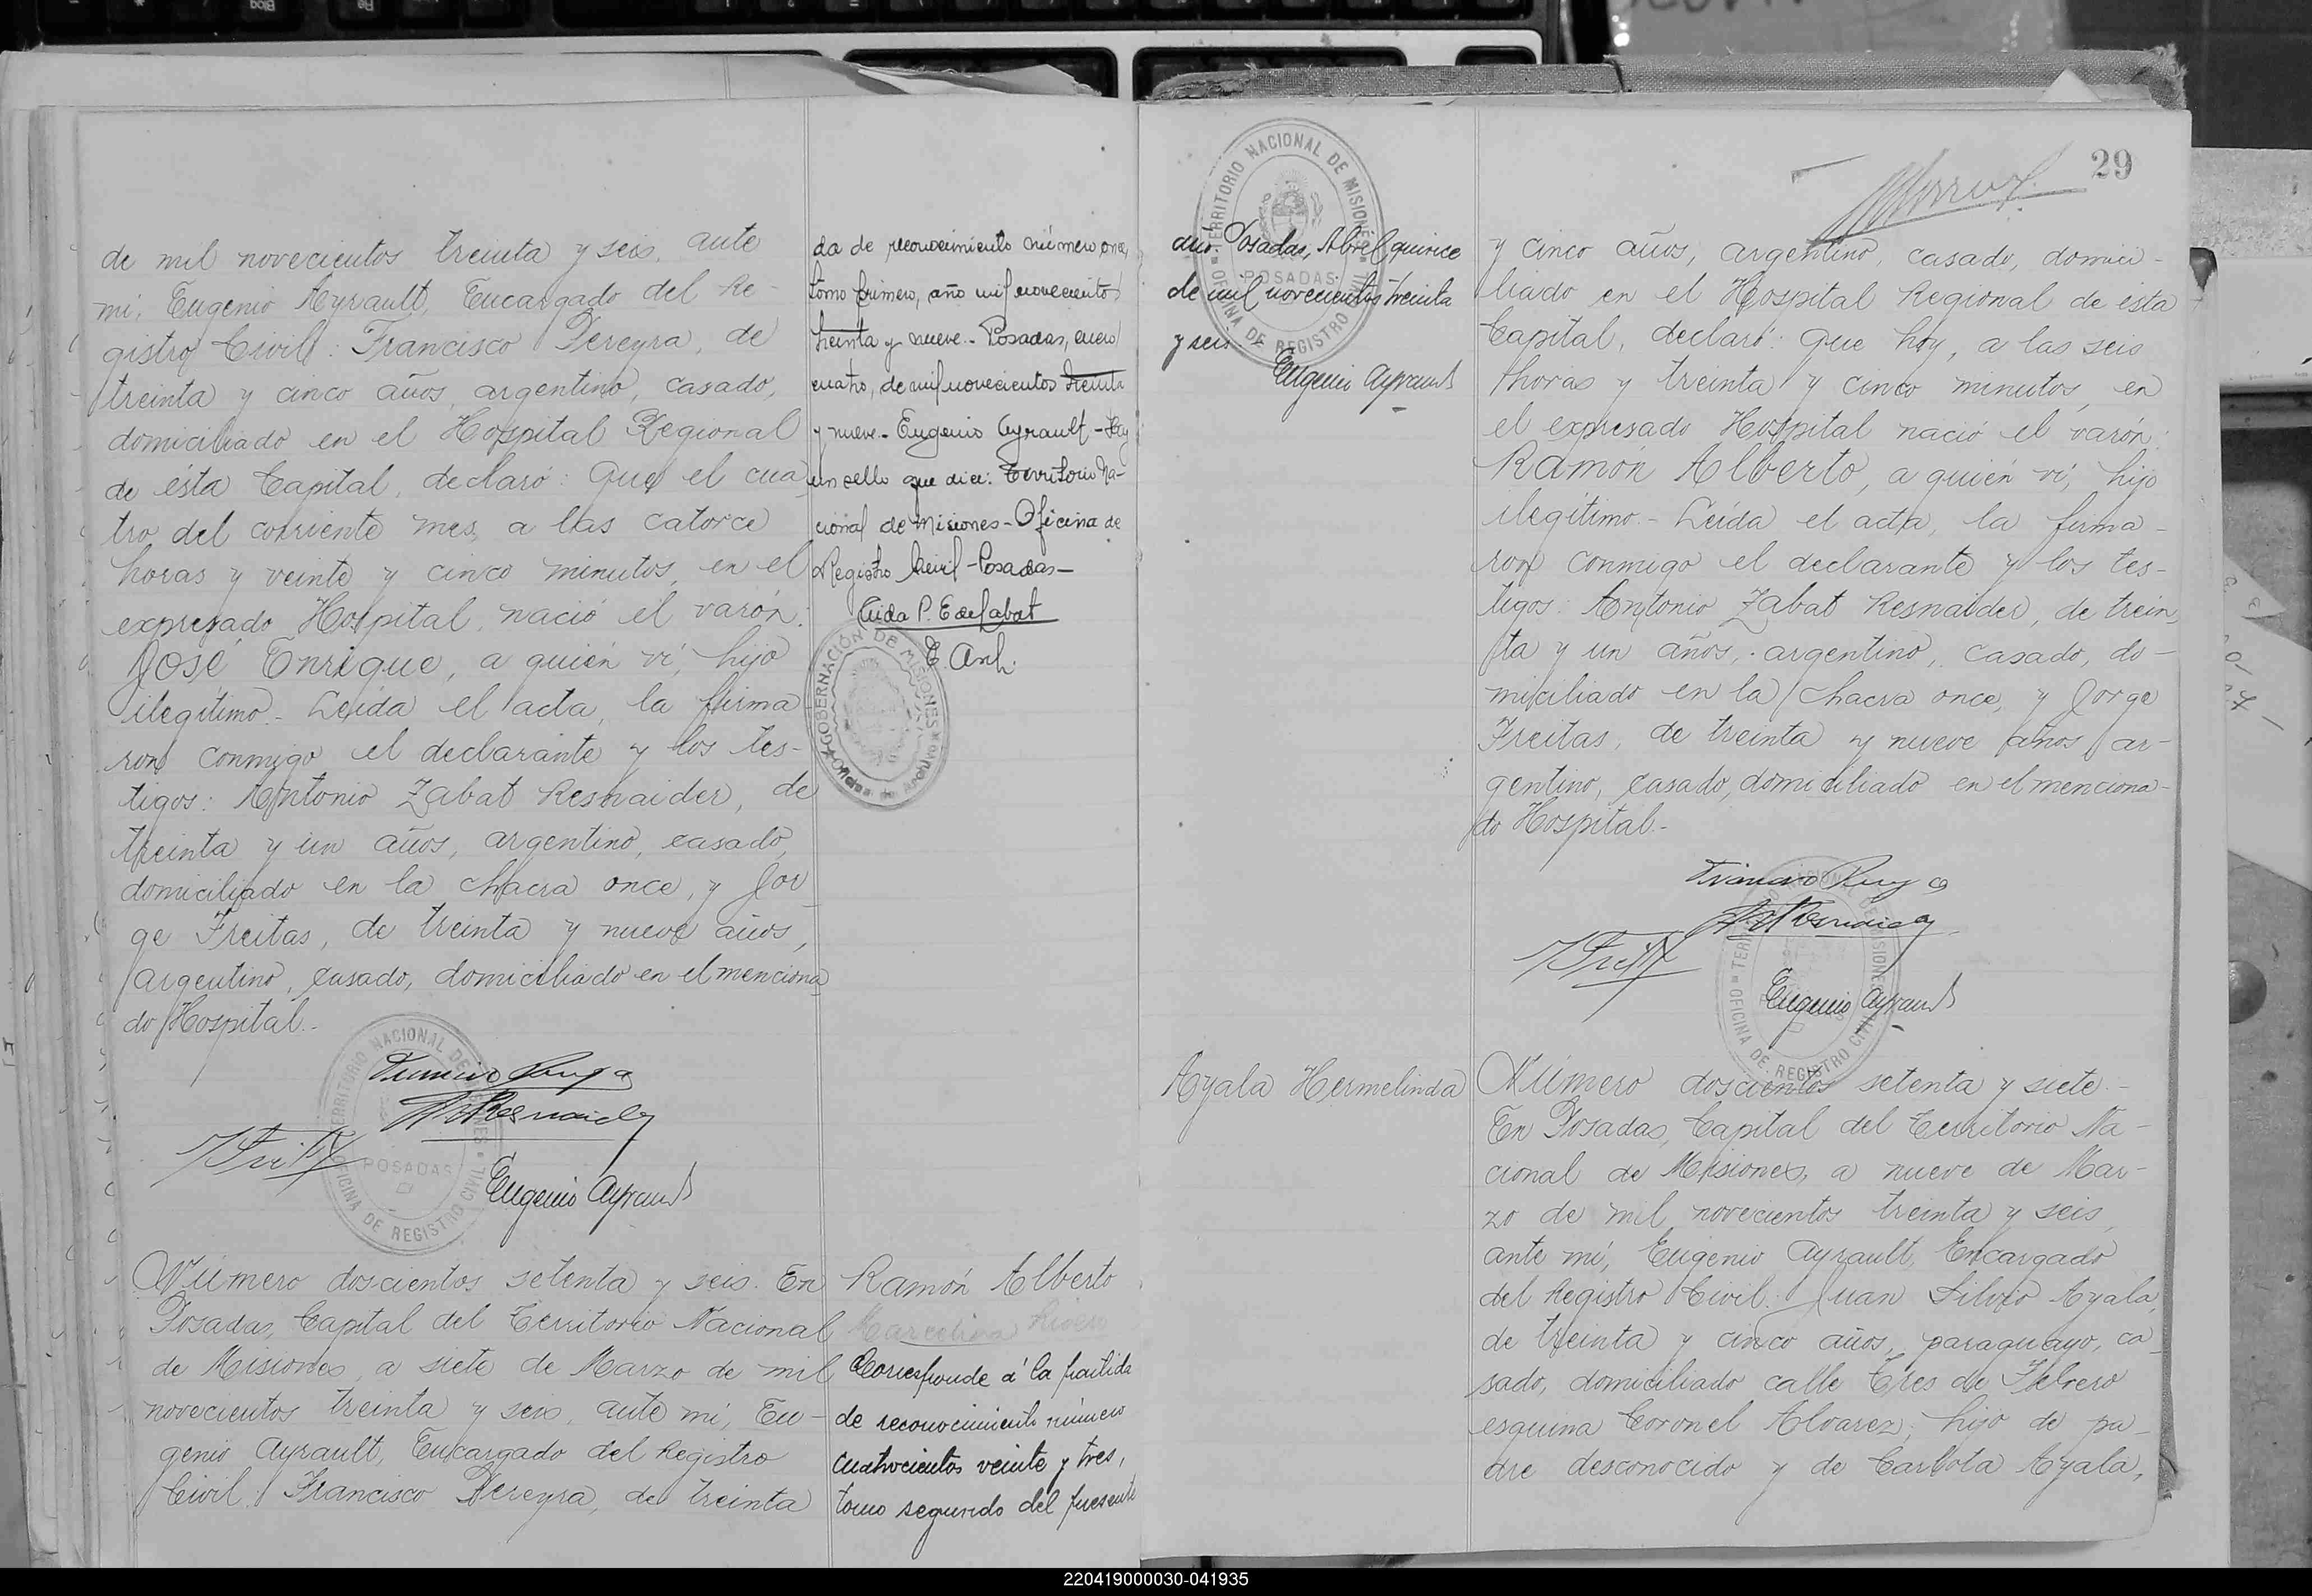 de mil novecientos treinta y seis, ante
mi, Eugenio Ayrault, Encargado del Re-
gistro Civil: Francisco Pereyra, de
treinta y cinco años, argentino, casado,
domiciliado en el Hospital Regional
de ésta Capital, declaró: Que el cua
tro del corriente mes, a las catorce
horas y veinte y cinco minutos, en el
expresado Hospital, nació el varón:
José Enrique, a quién ví, hijo
ilegítimo.- Leída el acta, la firma
ron conmigo el declarante y los tes-
tigos: Antonio Zabat Resnaider, de
treinta y un años, argentino, casado,
domiciliado en la chacra once, y Jor
ge Freitas, de treinta y nueve años,
argentino, casado, domiciliado en el menciona
do Hospital.-
TERRITORIO NACIONAL DE MISIONES
OFICINA DE REGISTRO CIVIL
POSADAS
Eugenio Ayrault
Número doscientos setenta y seis. En
Posadas, Capital del Territorio Nacional
de Misiones, a siete de Marzo de mil
novecientos treinta y seis, ante mi, Eu-
genio Ayrault, Encargado del Registro
Civil: Francisco Pereyra, de treinta
da de reconocimiento número once,
tomo primero, año mil novecientos
treinta y nueve.- Posadas, enero
cuatro, de mil novecientos treinta
y nueve.- Eugenio Ayrault - Hay
un sello que dice: Territorio Na-
cional de Misiones - Oficina de
Registro Civil - Posadas -
GOBERNACIÓN DE MISIONES
Oficina de Archivo
Ramón Alberto
Marcelina
Corresponde á la partida
de reconocimiento número
cuatrocientos veinte y tres,
tomo segundo del presente
TERRITORIO NACIONAL DE MISIONES
OFICINA DE REGISTRO CIVIL
POSADAS
año. Posadas, Abril quince
de mil novecientos treinta
y seis.-
Eugenio Ayrault
Ayala Hermelinda
29
y cinco años, argentino, casado, domici-
liado en el Hospital Regional de ésta
Capital, declaró: Que hoy, a las seis
horas y treinta y cinco minutos, en
el expresado Hospital nació el varón:
Ramón Alberto, a quién ví, hijo
ilegítimo.- Leída el acta, la firma-
ron conmigo el declarante y los tes-
tigos: Antonio Zabat Resnaider, de trein
ta y un años, argentino, casado, do-
miciliado en la chacra once, y Jorge
Freitas, de treinta y nueve años, ar-
gentino, casado, domiciliado en el menciona-
do Hospital.-
Eugenio Ayrault
OFICINA DE REGISTRO CIVIL
Número doscientos setenta y siete.-
En Posadas, Capital del Territorio Na-
cional de Misiones, a nueve de Mar-
zo de mil novecientos treinta y seis,
ante mi, Eugenio Ayrault, Encargado
del Registro Civil: Juan Silvio Ayala,
de treinta y cinco años, paraguayo, ca
sado, domiciliado calle Tres de Febrero
esquina Coronel Alvarez; hijo de pa-
dre desconocido y de Carlota Ayala,
220419000030-041935